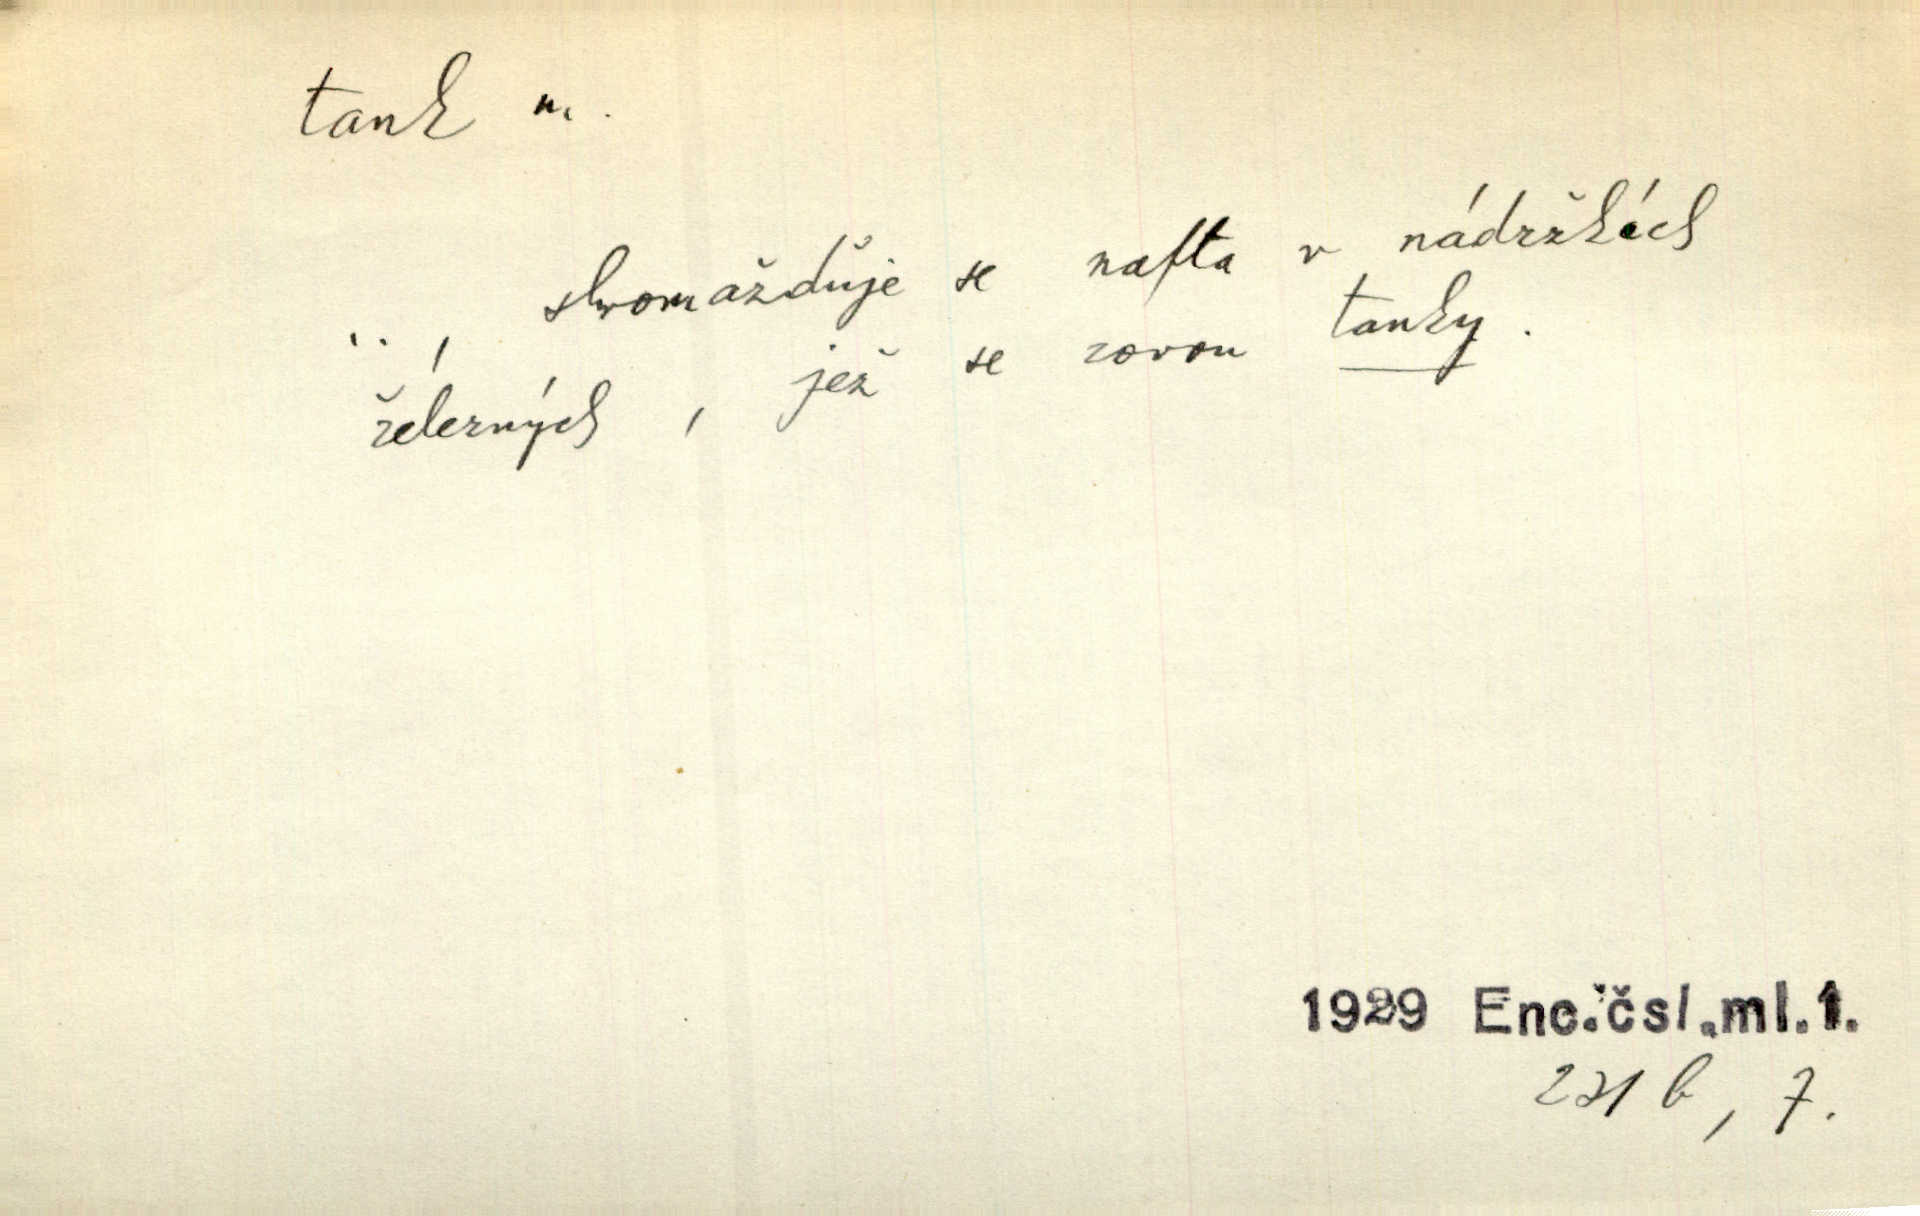 tank m.
.., shromažďuje se nafta v nádržkách
železných, jež se zovou tanky.
1929 Enc. čsl. ml. 1.
231 b, 7.